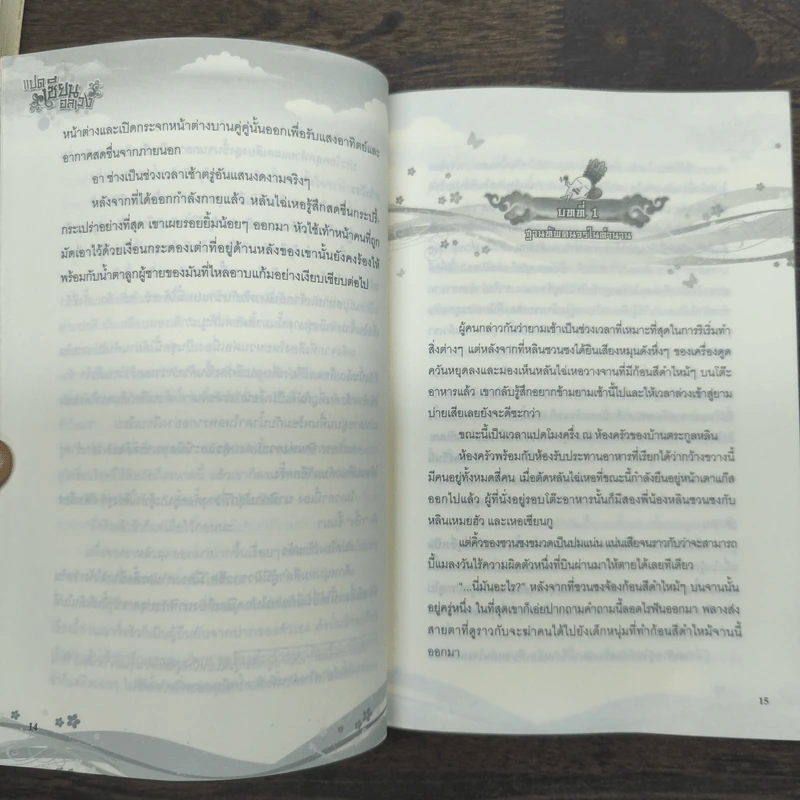 แปด
เซียน
อลวง
หน้าต่างและเปิดกระจกหน้าต่างบานคู่คู่นั้นออกเพื่อรับแสงอาทิตย์และ
อากาศสดชื่นจากภายนอก
อา ช่างเป็นช่วงเวลาเช้าตรู่อันแสนงดงามจริงๆ
หลังจากที่ได้ออกกำลังกายแล้ว หลันไฉ่เหอรู้สึกสดชื่นกระปรี้-
กระเปร่าอย่างที่สุด เขาเผยรอยยิ้มน้อยๆ ออกมา หัวใช้เท้าหน้าคนที่ถูก
มัดเอาไว้ด้วยเงื่อนกระดองเต่าที่อยู่ด้านหลังของเขานั้นยังคงร้องไห้
พร้อมกับน้ำตาลูกผู้ชายของมันที่ไหลอาบแก้มอย่างเงียบเชียบต่อไป
14
บทที่ 1
ฐานทัพเทพเซียนในตำนาน
ผู้คนกล่าวกันว่ายามเช้าเป็นช่วงเวลาที่เหมาะที่สุดในการริเริ่มทำ
สิ่งต่างๆ แต่หลังจากที่หลินชวนชงได้ยินเสียงหมุนดังหึ่งๆ ของเครื่องดูด
ควันหยุดลงและมองเห็นหลันไฉ่เหอวางจานที่มีก้อนสีดำไหม้ๆ บนโต๊ะ
อาหารแล้ว เขากลับรู้สึกอยากข้ามยามเช้านี้ไปและให้เวลาล่วงเข้าสู่ยาม
บ่ายเสียเลยยังจะดีซะกว่า
ขณะนี้เป็นเวลาแปดโมงครึ่ง ณ ห้องครัวของบ้านตระกูลหลิน
ห้องครัวพร้อมกับห้องรับประทานอาหารที่เรียกได้ว่ากว้างขวางนี้
มีคนอยู่ทั้งหมดสี่คน เมื่อตัดหลันไฉ่เหอที่ขณะนี้กำลังยืนอยู่หน้าเตาแก๊ส
ออกไปแล้ว ผู้ที่นั่งอยู่รอบโต๊ะอาหารนั้นก็มีสองพี่น้องหลินชวนชงกับ
หลินเหมยฮัว และเหอเซียนกู
แต่คิ้วของชวนชงขมวดเป็นปมแน่น แน่นเสียจนราวกับว่าจะสามารถ
บี้แมลงวันไร้ความผิดตัวหนึ่งที่บินผ่านมาให้ตายได้เลยทีเดียว
"...นี่มันอะไร?" หลังจากที่ชวนชงจ้องก้อนสีดำไหม้ๆ บนจานนั้น
อยู่ครู่หนึ่ง ในที่สุดเขาก็เอ่ยปากถามคำถามนี้ลอดไรฟันออกมา พลางส่ง
สายตาที่ดูราวกับจะฆ่าคนได้ไปยังเด็กหนุ่มที่ทำก้อนสีดำไหม้จานนี้
ออกมา
15